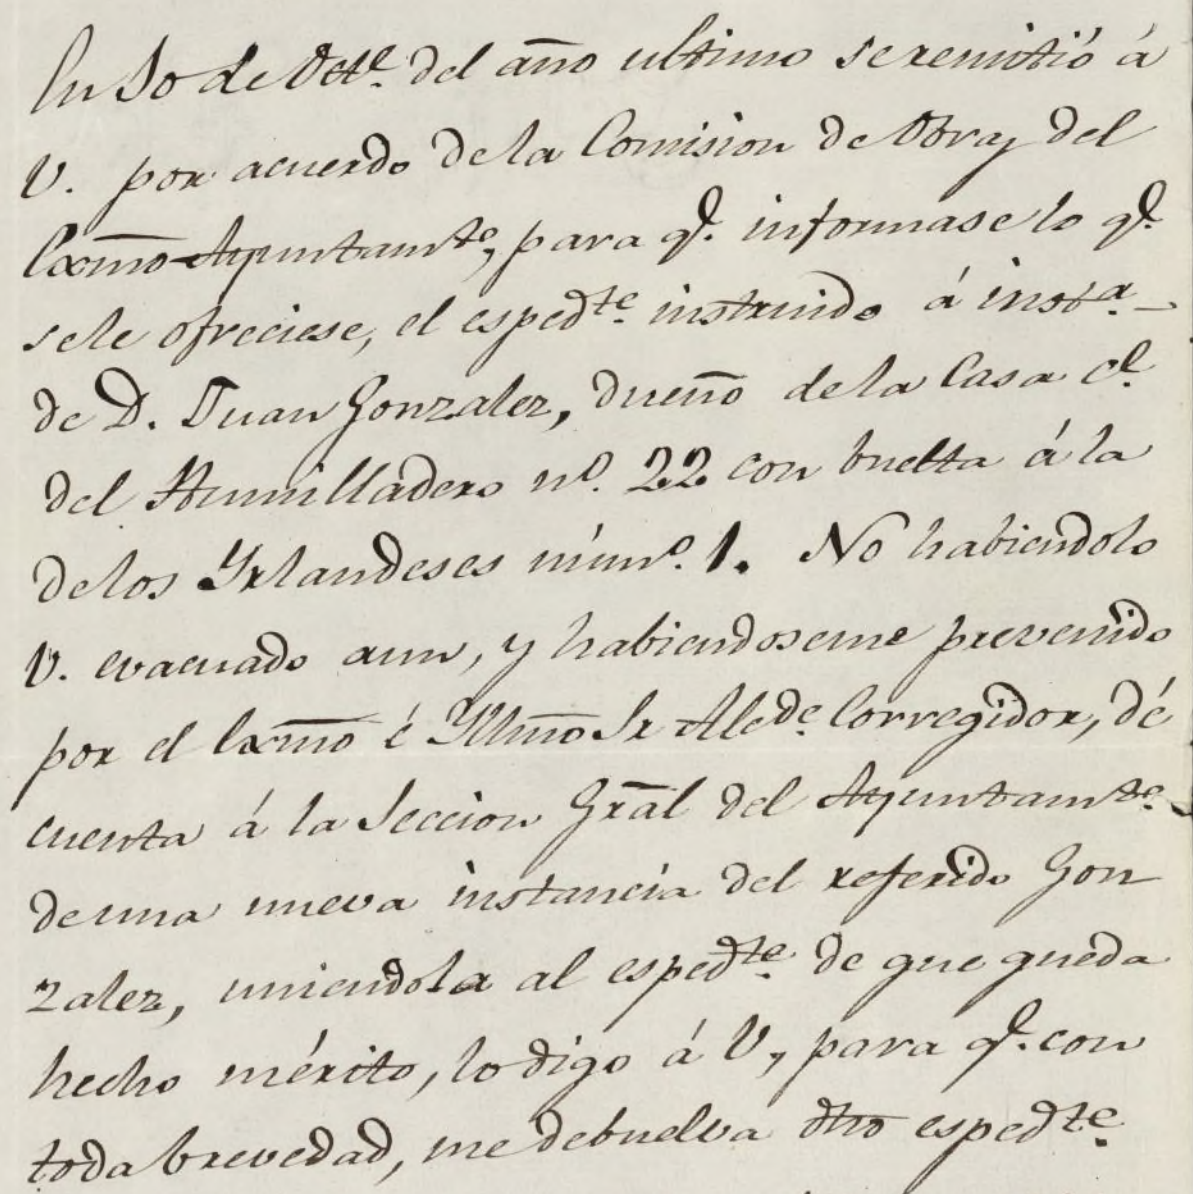 En 30 de Octe. del año ultimo se remitió á
V. por acuerdo de la Comision de Obras del
Exmo Ayuntamto, para q. informase lo q.
se le ofreciese, el espedte. instruido á insta.
de D. Juan Gonzalez, dueño de la Casa cl.
del Humilladero no. 22 con buelta á la
de los Yrlandeses númo. 1. No habiendolo
V. evacuado aun, y habiendoseme prevenido
por el Exmo é Yllmo Sr Alcde. Corregidor, dé
cuenta á la Seccion Gral del Ayuntamto.
de una nueva instancia del referido Gon
zalez, uniendola al espedte. de que queda
hecho mérito, lo digo á V, para q. con
toda brevedad, me debuelva dho espedte.